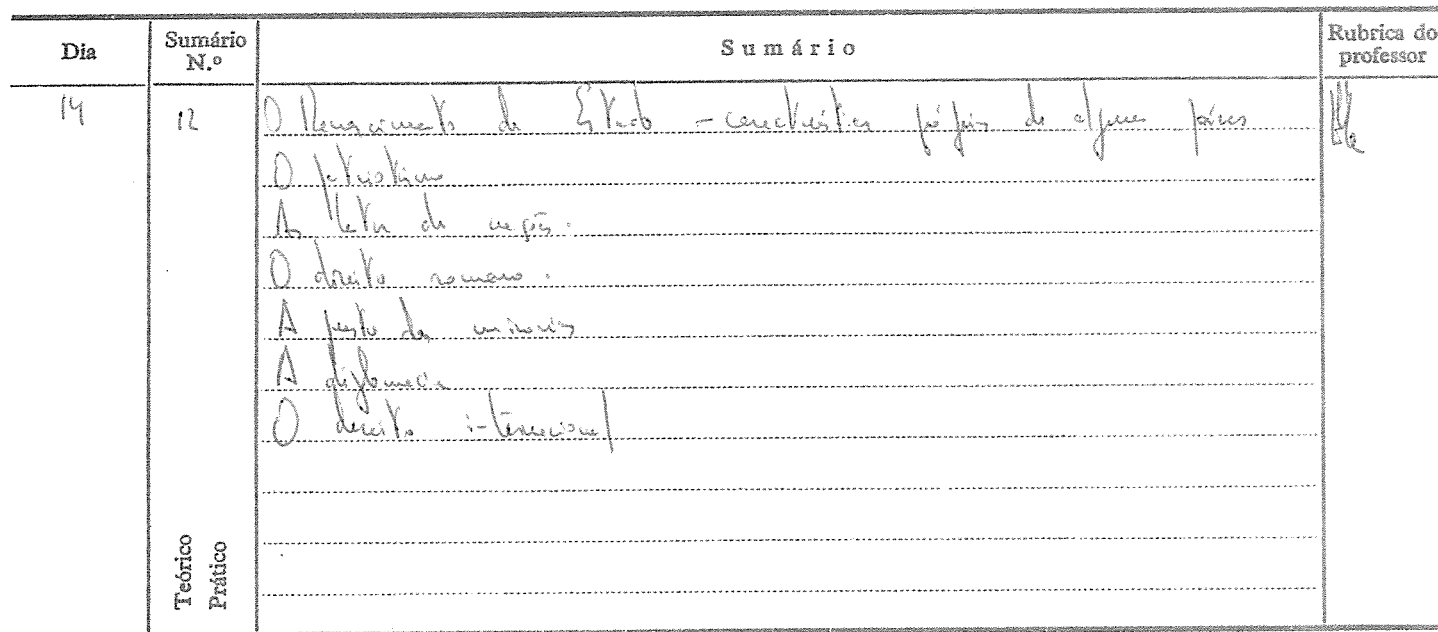 Dia Sumário N.º Sumário Rubrica do professor
14 12 O Renascimento do Estado - características próprias de alguns países
O patriotismo
As letras de
O direito romano.
A da minorias
A diplomacia
O direito internacional
Teórico
Prático